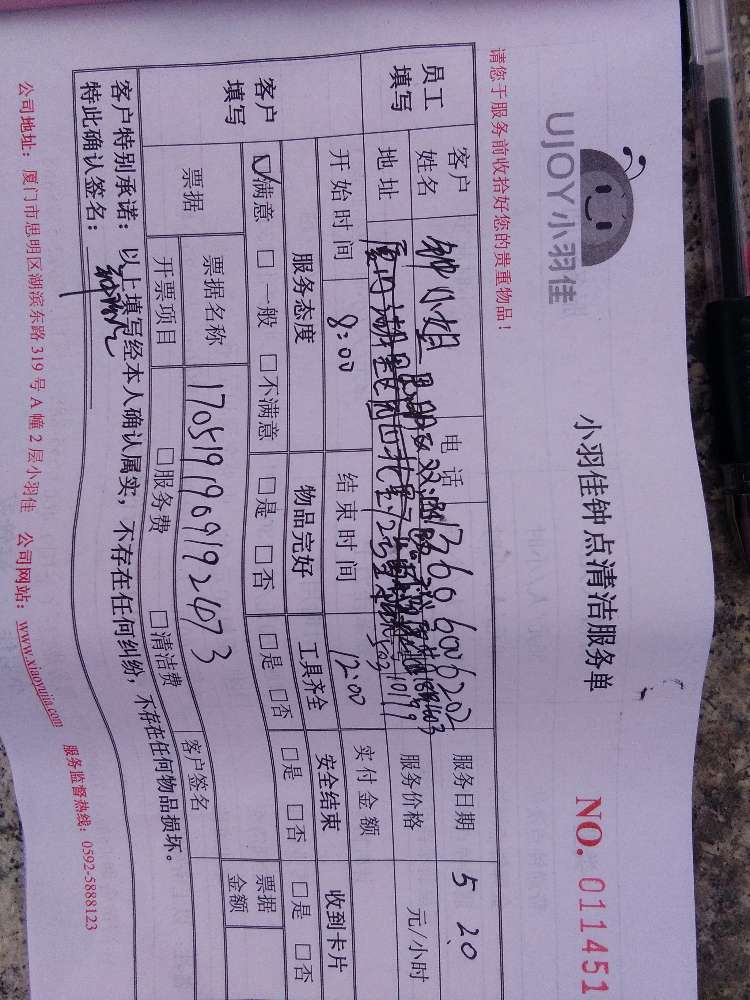 UJOY小羽佳
小羽佳钟点清洁服务单
NO. 011451
请您于服务前收拾好您的贵重物品！
员工填写
客户姓名 小姐 电话 13606006202 服务日期 5 20
地址 服务价格 元/小时
开始时间 8:00 结束时间 12:00 实付金额
客户填写
服务态度 物品完好 工具齐全 安全结束 收到卡片
☑满意 □一般 □不满意 □是 □否 □是 □否 □是 □否 □是 □否
票据 票据名称 1705191909192473 客户签名 票据金额
开票项目 □服务费 □清洁费
客户特别承诺：以上填写经本人确认属实，不存在任何纠纷，不存在任何物品损坏。
特此确认签名：
公司地址：厦门市思明区湖滨东路319号A幢2层小羽佳 公司网站：www.xiaoyujia.com 服务监督热线：0592-5888123